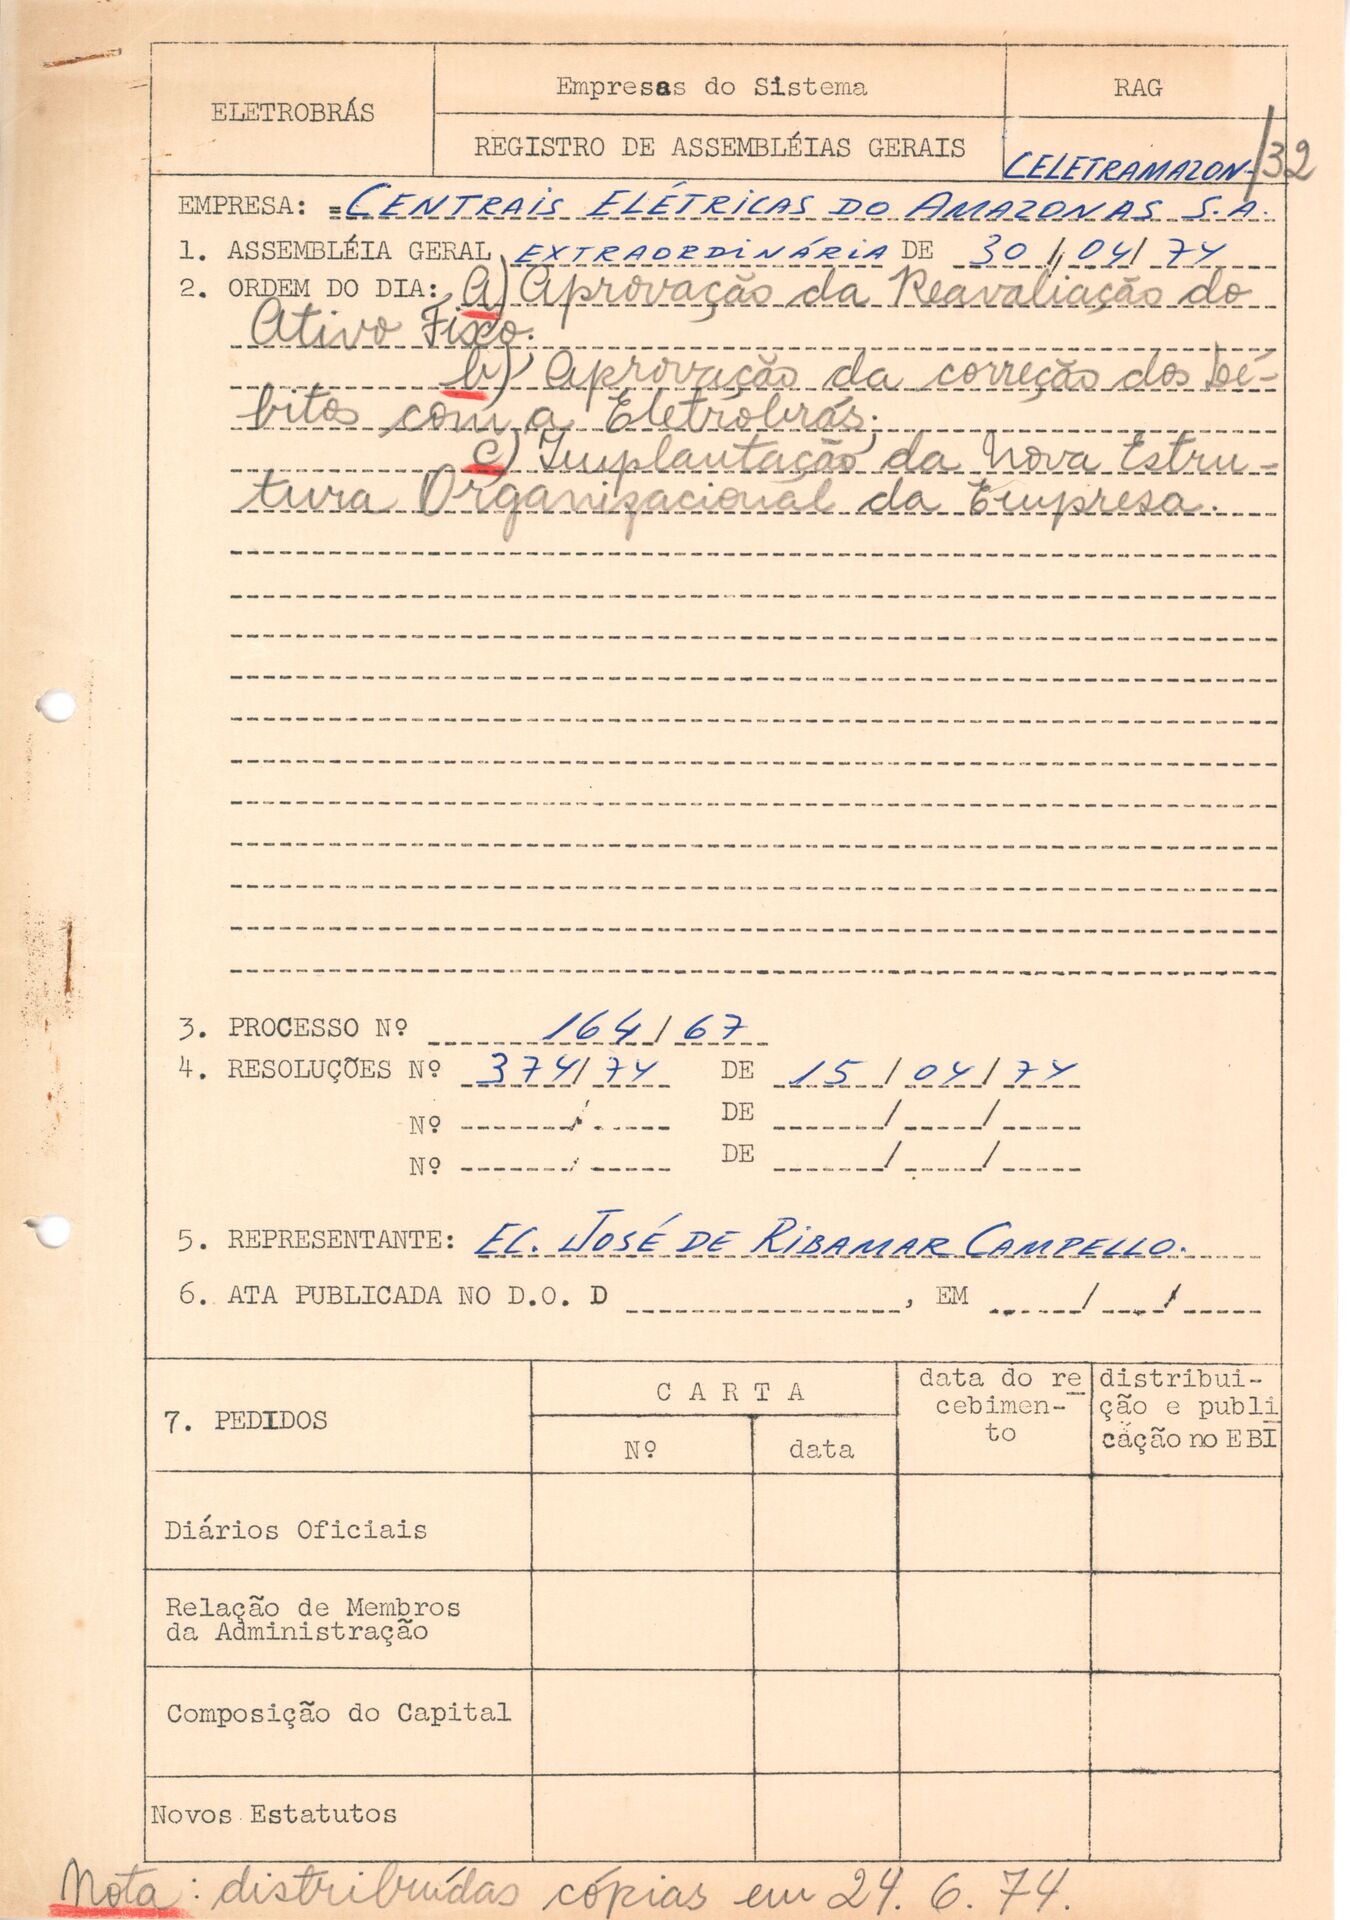 ELETROBRÁS
Empresas do Sistema
REGISTRO DE ASSEMBLÉIAS GERAIS
RAG
CELETRAMAZON-/32
EMPRESA: CENTRAIS ELÉTRICAS DO AMAZONAS S.A.
1. ASSEMBLÉIA GERAL EXTRAORDINÁRIA DE 30/04/74
2. ORDEM DO DIA: a) Aprovação da Reavaliação do
Ativo Fixo.
b) Aprovação da correção dos dé-
bitos com a Eletrobrás.
c) Implantação da Nova Estru-
tura Organizacional da Empresa.
3. PROCESSO Nº 164/67
4. RESOLUÇÕES Nº 374/74 DE 15/04/74
Nº / DE / /
Nº / DE / /
5. REPRESENTANTE: EC. JOSÉ DE RIBAMAR CAMPELLO.
6. ATA PUBLICADA NO D.O. D , EM / /
7. PEDIDOS
CARTA
Nº
data
data do re
cebimen-
to
distribui-
ção e publi
cação no EBI
Diários Oficiais
Relação de Membros
da Administração
Composição do Capital
Novos Estatutos
Nota: distribuídas cópias em 24.6.74.